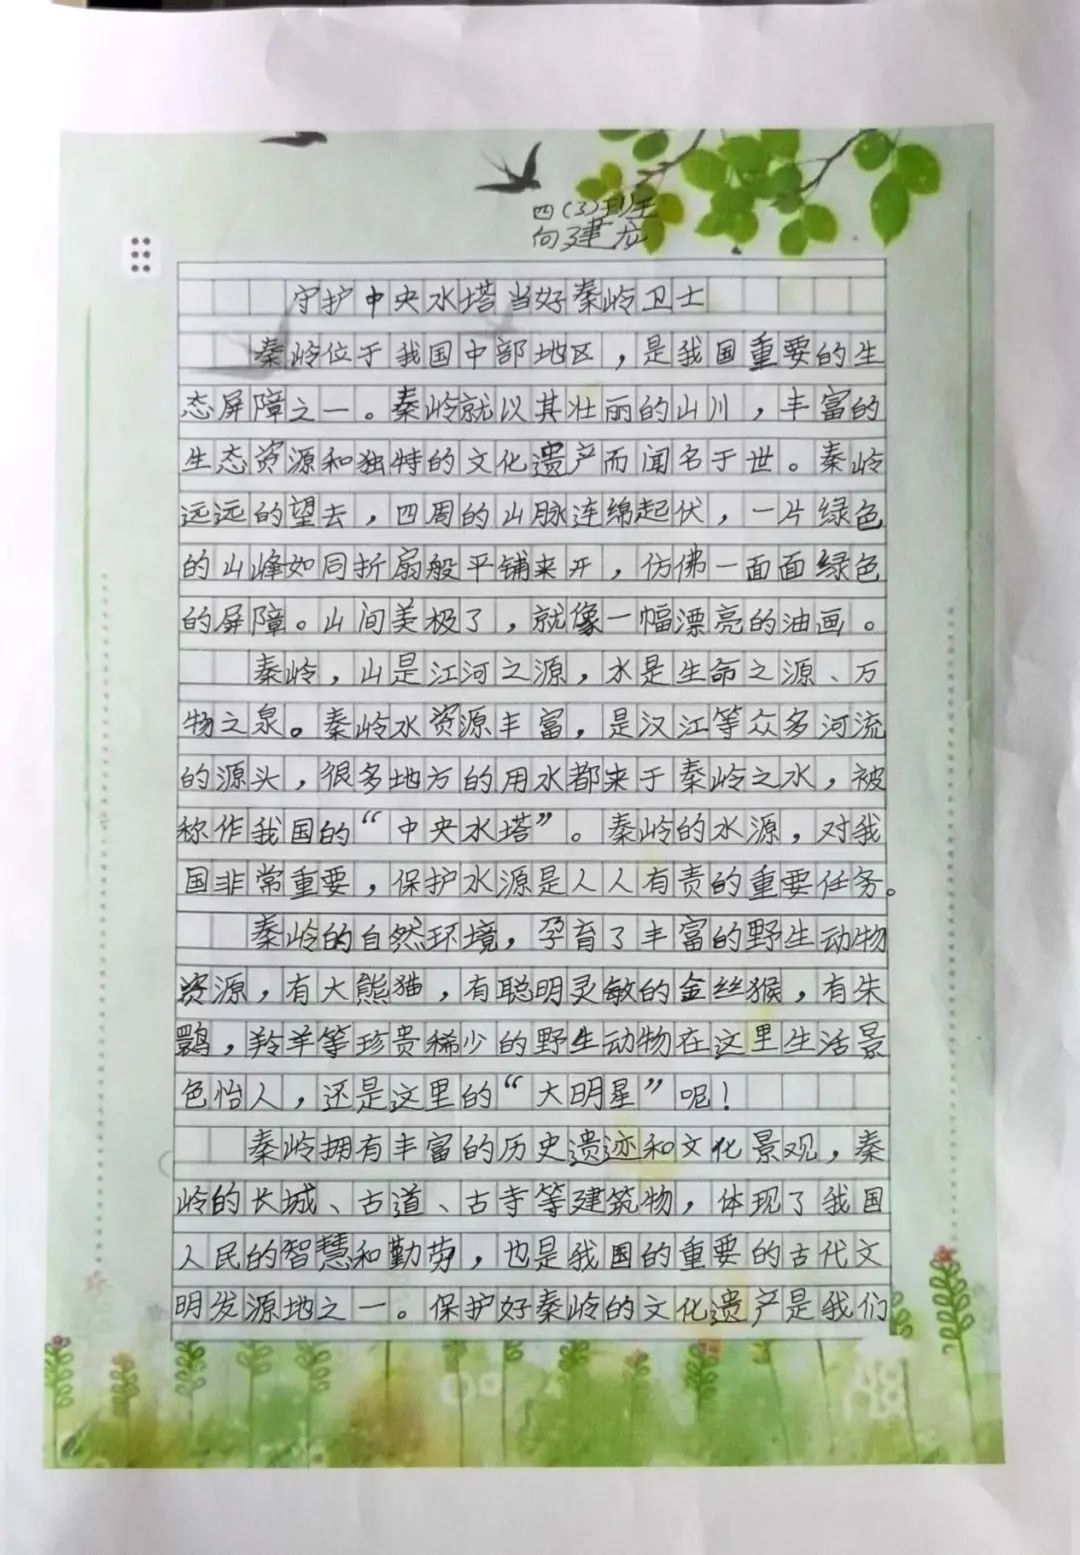 四(3)班
向建龙
守护中央水塔当好秦岭卫士
秦岭位于我国中部地区，是我国重要的生
态屏障之一。秦岭就以其壮丽的山川，丰富的
生态资源和独特的文化遗产而闻名于世。秦岭
远远的望去，四周的山脉连绵起伏，一片绿色
的山峰如同折扇般平铺来开，仿佛一面面绿色
的屏障。山间美极了，就像一幅漂亮的油画。
秦岭，山是江河之源，水是生命之源、万
物之泉。秦岭水资源丰富，是汉江等众多河流
的源头，很多地方的用水都来于秦岭之水，被
称作我国的“中央水塔”。秦岭的水源，对我
国非常重要，保护水源是人人有责的重要任务。
秦岭的自然环境，孕育了丰富的野生动物
资源，有大熊猫，有聪明灵敏的金丝猴，有朱
鹮，羚羊等珍贵稀少的野生动物在这里生活景
色怡人，还是这里的“大明星”呢！
秦岭拥有丰富的历史遗迹和文化景观，秦
岭的长城、古道、古寺等建筑物，体现了我国
人民的智慧和勤劳，也是我国的重要的古代文
明发源地之一。保护好秦岭的文化遗产是我们